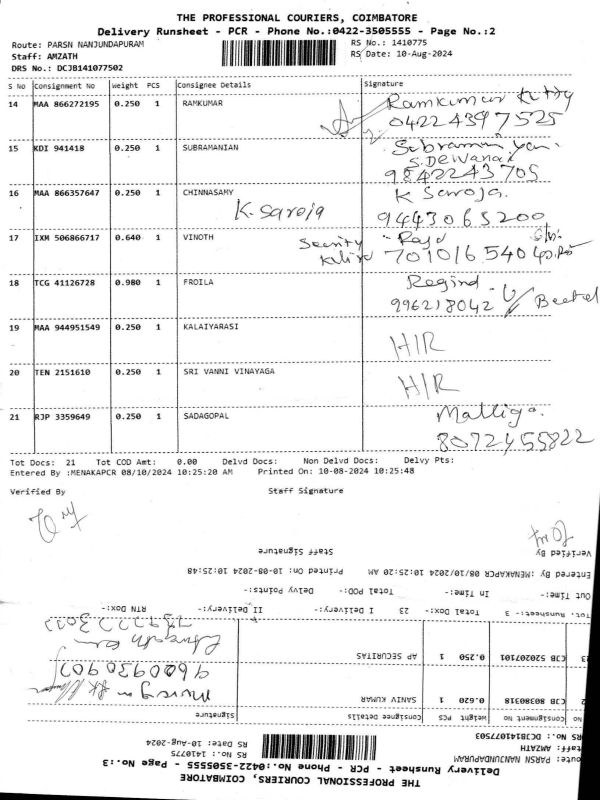 THE PROFESSIONAL COURIERS, COIMBATORE
Delivery Runsheet - PCR - Phone No.:0422-3505555 - Page No.:2
Route: PARSN NANJUNDAPURAM
RS No.: 1410775
Staff: AMZATH
RS Date: 10-Aug-2024
DRS No.: DCJB141077502
S No Consignment No Weight PCS Consignee Details Signature
14 MAA 866272195 0.250 1 RAMKUMAR Ramkumar
04224397525
15 KDI 941418 0.250 1 SUBRAMANIAN
9842243705
16 MAA 866357647 0.250 1 CHINNASAMY K Saroja.
K. saroja 9443065200
17 IXM 506866717 0.640 1 VINOTH Security
18 TCG 41126728 0.980 1 FROILA
996218042
19 MAA 944951549 0.250 1 KALAIYARASI H/R
20 TEN 2151610 0.250 1 SRI VANNI VINAYAGA H/R
21 RJP 3359649 0.250 1 SADAGOPAL Malliga.
8072455822
Tot Docs: 21 Tot COD Amt: 0.00 Delvd Docs: Non Delvd Docs: Delvy Pts:
Entered By :MENAKAPCR 08/10/2024 10:25:20 AM Printed On: 10-08-2024 10:25:48
Verified By Staff Signature
THE PROFESSIONAL COURIERS, COIMBATORE
Delivery Runsheet - PCR - Phone No.:0422-3505555 - Page No.:3
PARSN NANJUNDAPURAM
RS No.: 1410775
AMZATH
RS Date: 10-Aug-2024
RS No.: DCJB141077503
No Consignment No Weight PCS Consignee Details Signature
2 CJB 80380318 0.620 1 SANIV KUMAR
9600930907
CJB 520207101 0.250 1 AP SECURITAS
Tot. Runsheet:- 3 Total Dox:- 23 I Delivery:- II Delivery:- RTN Dox:-
Out Time:- In Time:- Total POD:- Delvy Points:-
Entered By :MENAKAPCR 08/10/2024 10:25:20 AM Printed On: 10-08-2024 10:25:48
Verified By Staff Signature